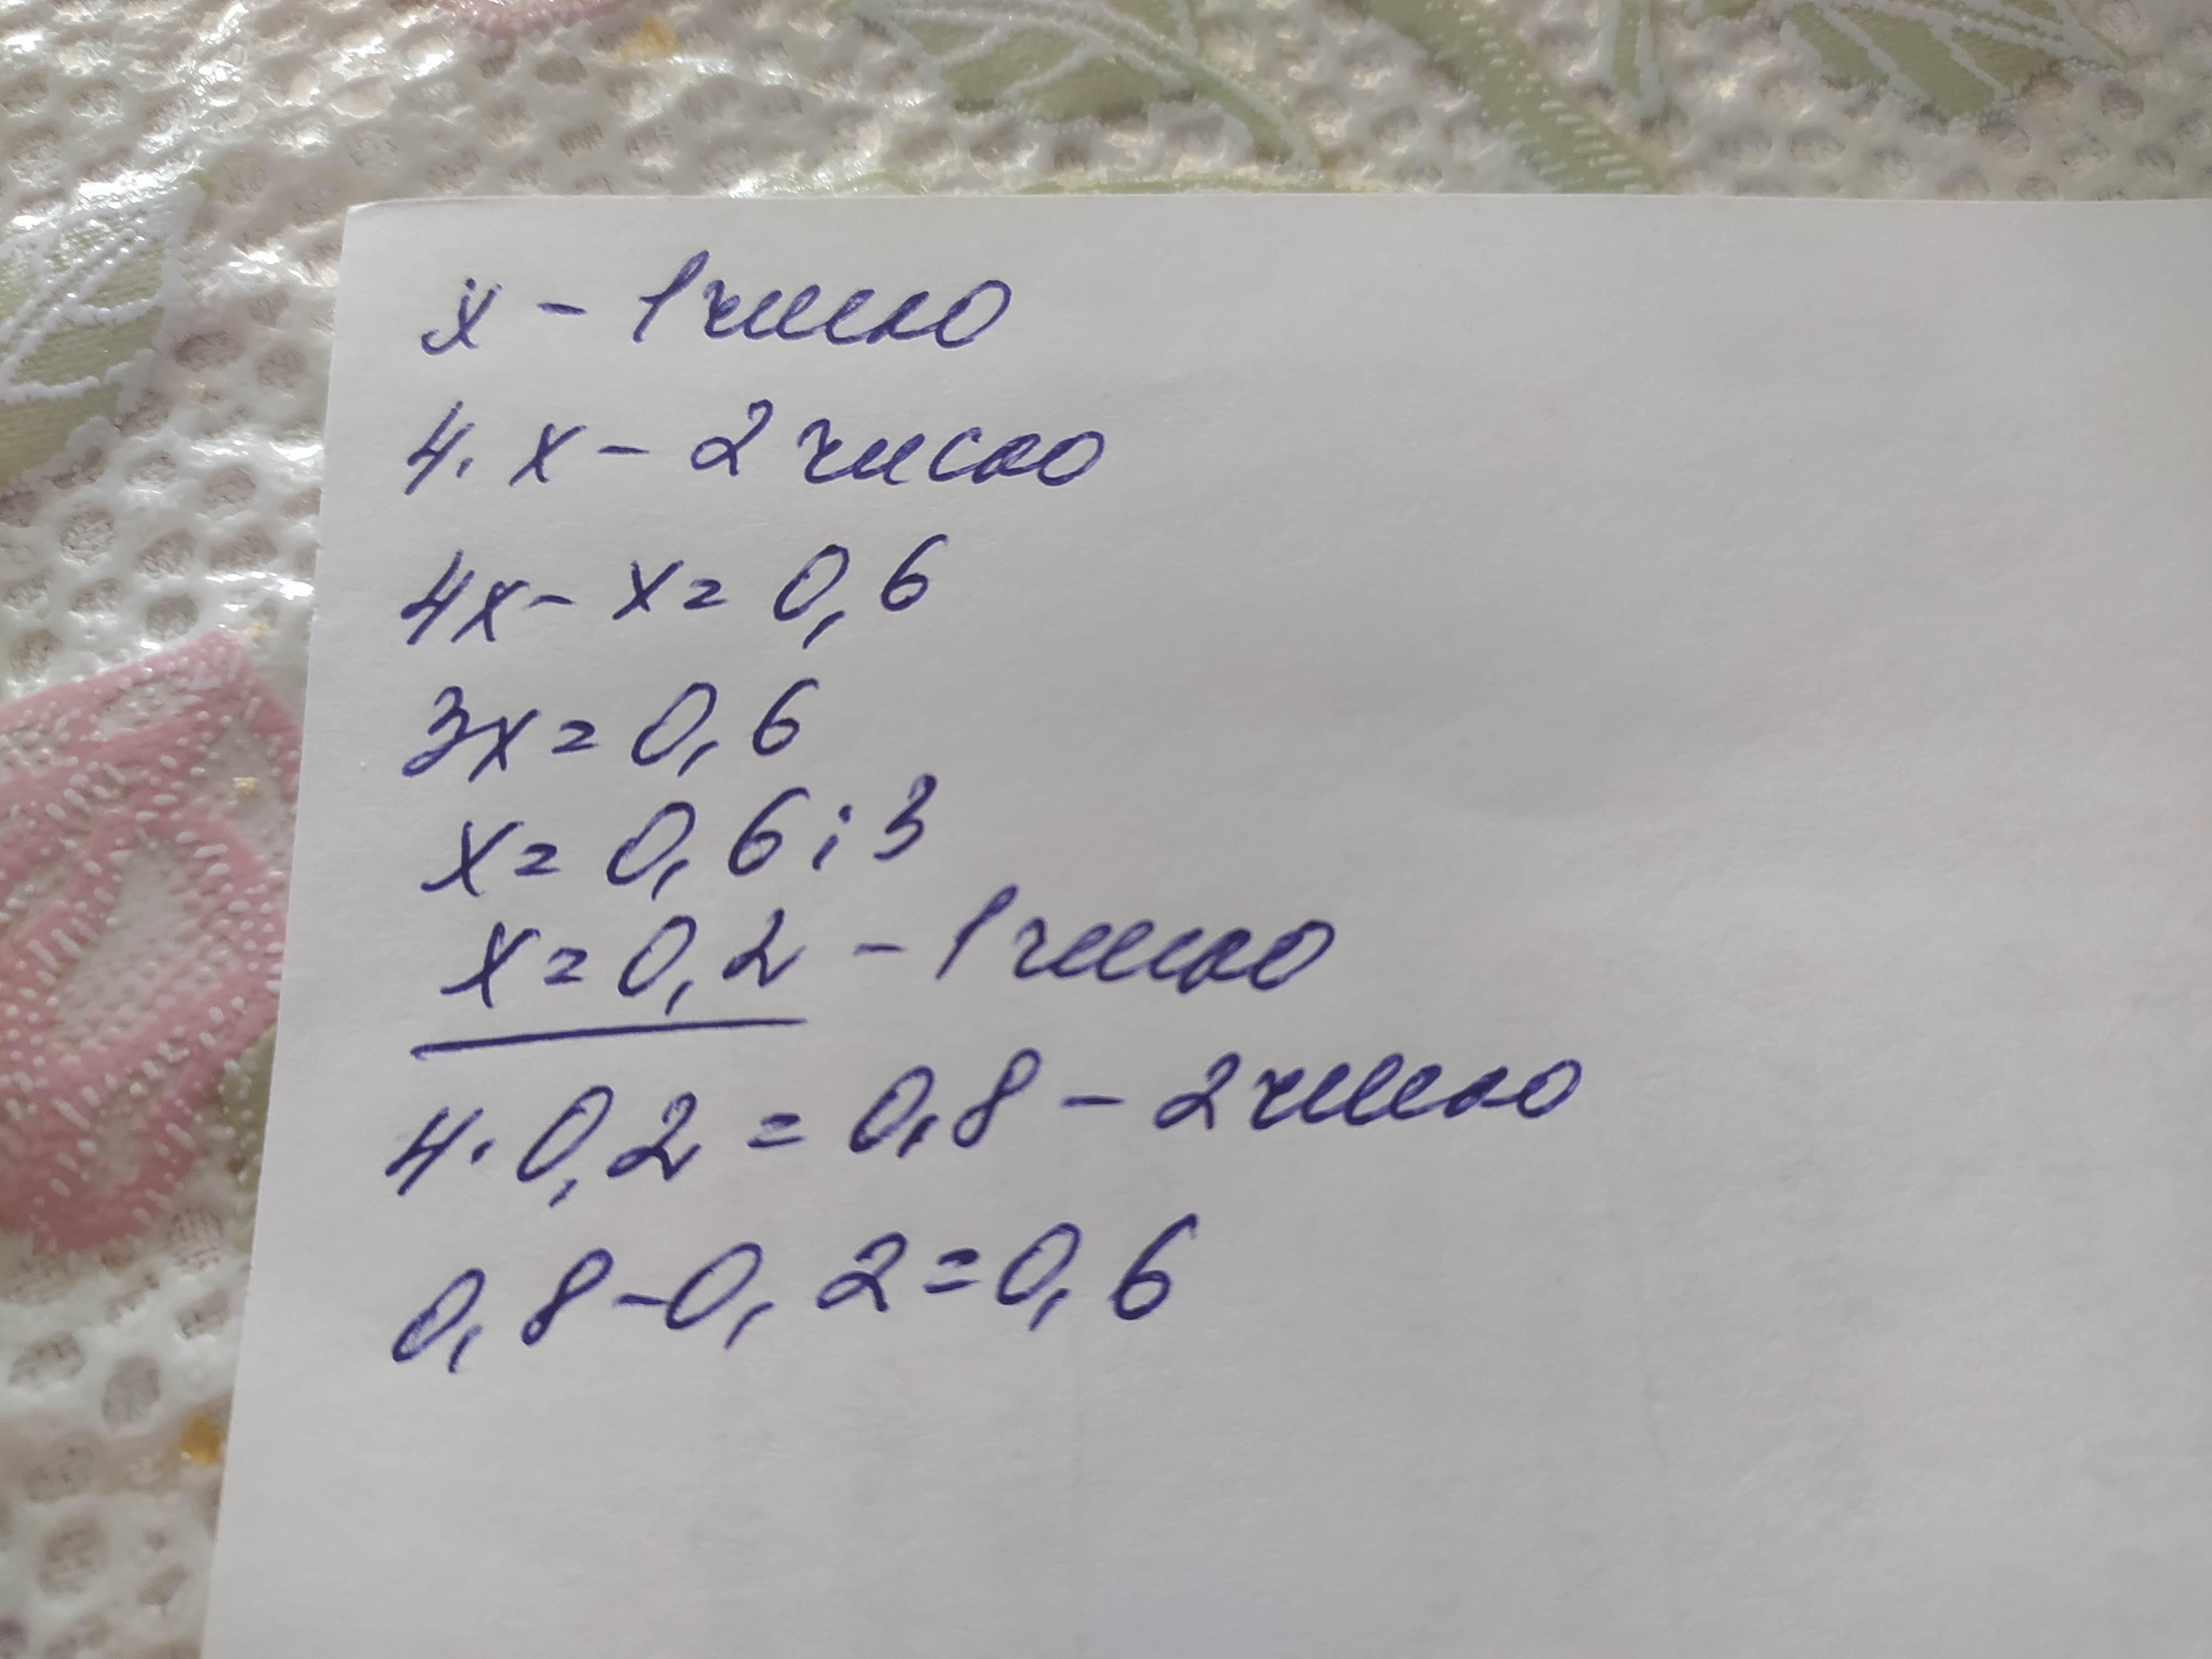 x - 1 число
4. x - 2 число
4x - x = 0,6
3x = 0,6
x = 0,6 : 3
x = 0,2 - 1 число
4 · 0,2 = 0,8 - 2 число
0,8 - 0,2 = 0,6